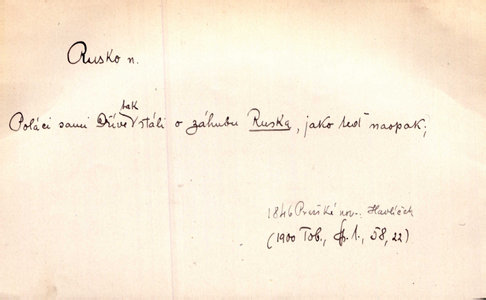 Rusko n.
Poláci sami Dříve tak stáli o záhubu Ruska, jako teď naopak;
1846 Pražské nov. Havlíček
(1900 Tob., 1, 58, 22)